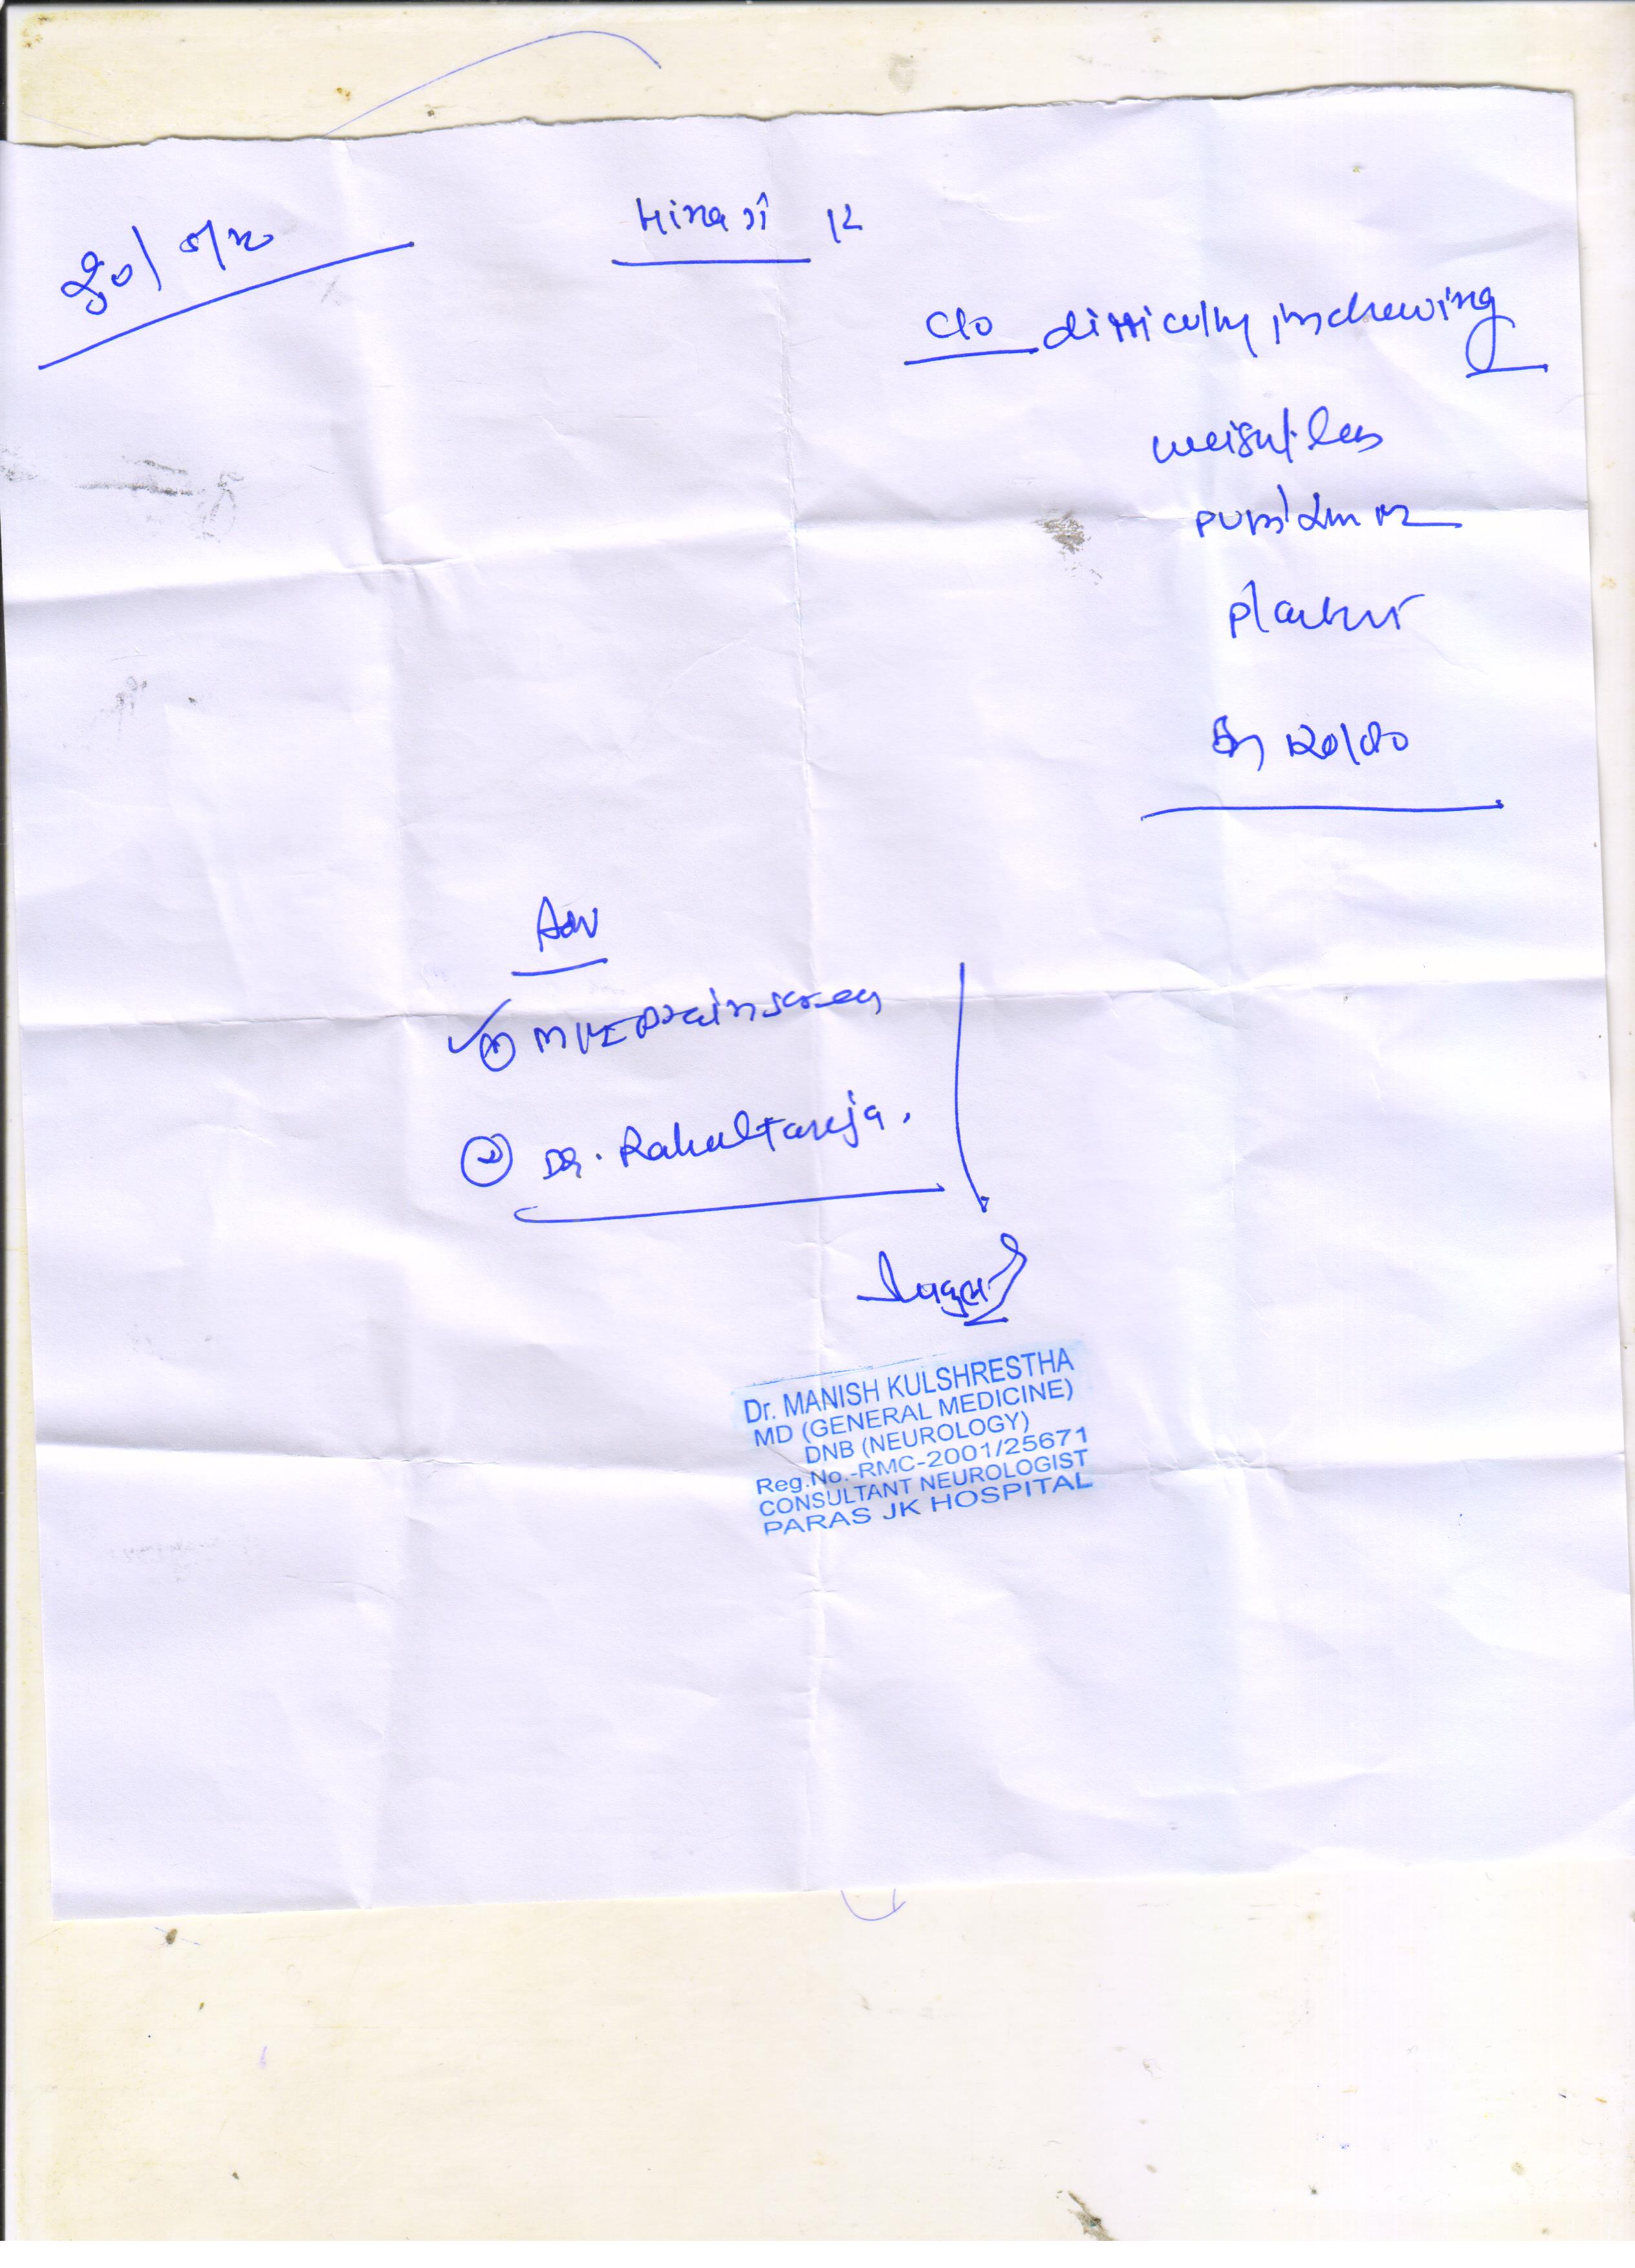 Hina Ji
c/o difficulty in chewing
weight loss
plantar
120/80
Adv
① MRI Brain screen
② Dr. Rahul Taneja.
Dr. MANISH KULSHRESTHA
MD (GENERAL MEDICINE)
DNB (NEUROLOGY)
Reg.No.-RMC-2001/25671
CONSULTANT NEUROLOGIST
PARAS JK HOSPITAL